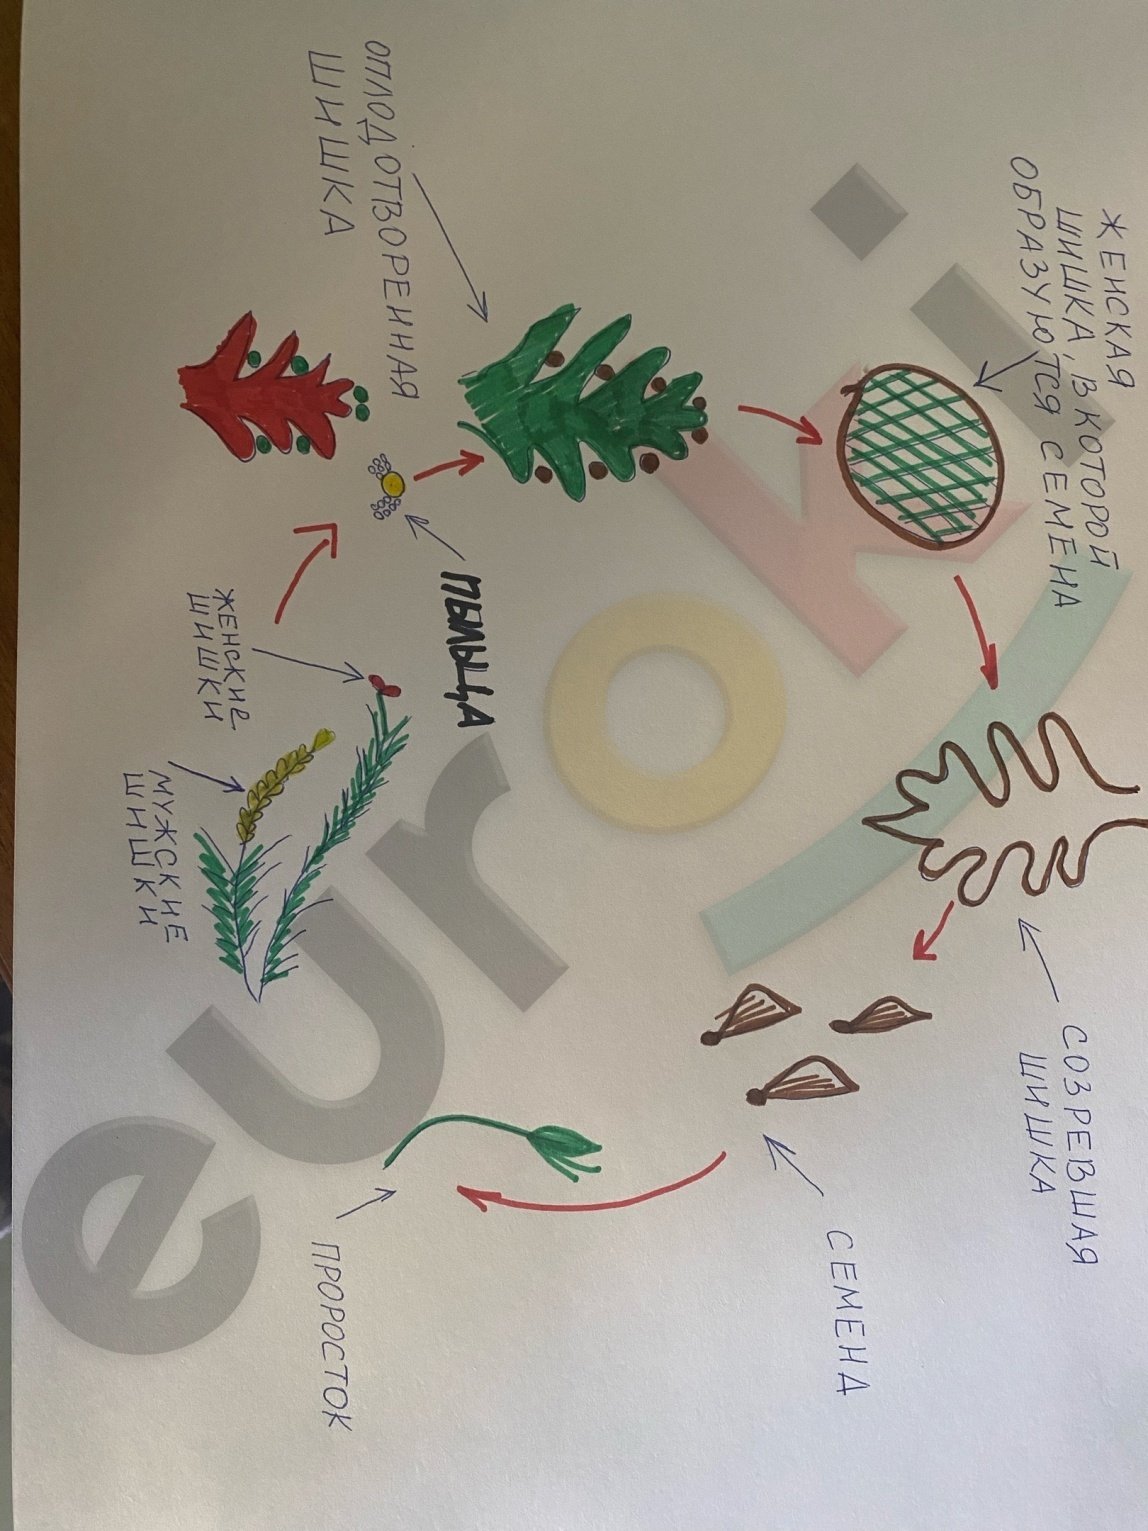 ЖЕНСКАЯ
ШИШКА, В КОТОРОЙ
ОБРАЗУЮТСЯ СЕМЕНА
ОПЛОДОТВОРЕННАЯ
ШИШКА
ПЫЛЬЦА
ЖЕНСКИЕ
ШИШКИ
МУЖСКИЕ
ШИШКИ
СОЗРЕВШАЯ
ШИШКА
СЕМЕНА
ПРОРОСТОК
euroki